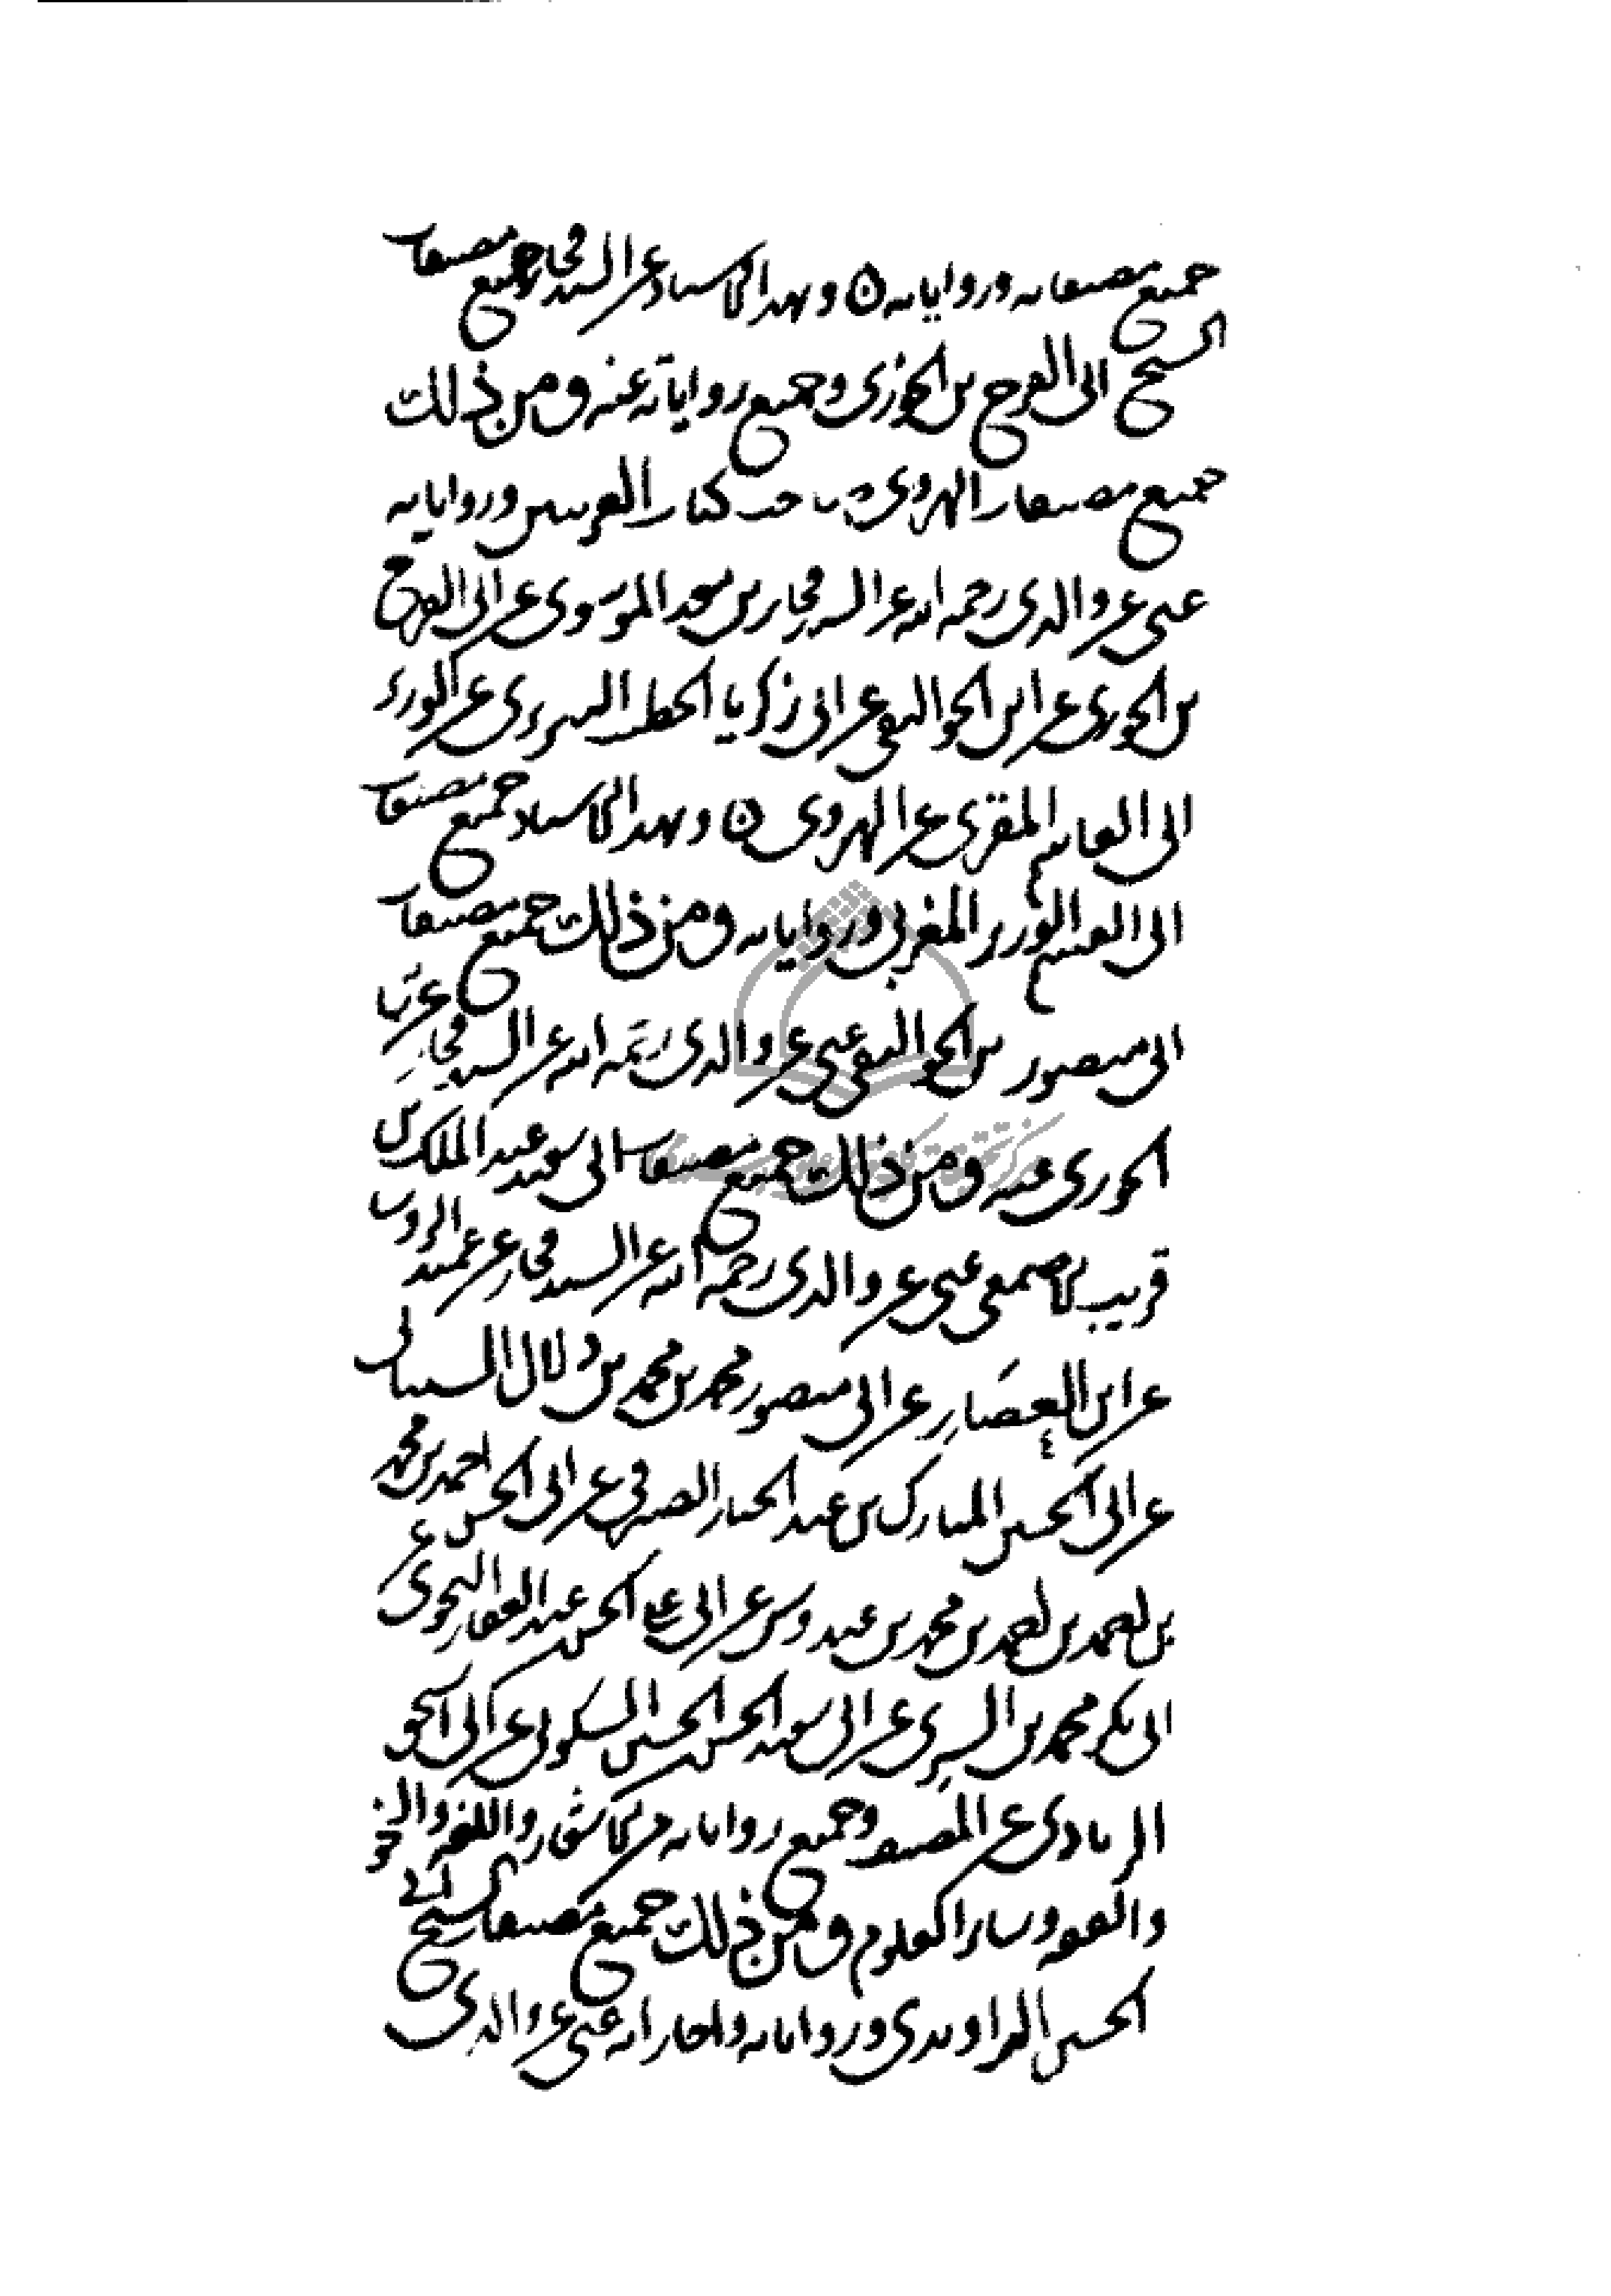 جميع مصنفاته ورواياته ٥ وبهذا الاسناد عن السيد فخار جميع مصنفات
الشيخ ابى الفرج بن الجوزى وجميع رواياته عنه ومن ذلك
جميع مصنفات الهروى صاحب كتاب الغريبين ورواياته
عنى عن والدى رحمه الله عن السيد فخار بن معد الموسوى عن ابى الفرج
بن الجوزى عن ابن الجواليقى عن ابى زكريا الخطيب التبريزى عن الوزير
ابى القاسم المقرى عن الهروى ٥ وبهذا الاسناد جميع مصنفات
ابى القسم الوزير المغربى ورواياته ومن ذلك جميع مصنفات
ابى منصور بن الجواليقى عنى عن والدى رحمه الله عن السيد فخار عن ابن
الجوزى عنه ومن ذلك جميع مصنفات ابى سعيد عبد الملك بن
قريب الاصمعى عنى عن والدى رحمه الله عن السيد فخار عن عميد الرؤسا
عن ابن العصار عن ابى منصور محمد بن محمد بن دلال الشيبانى
عن ابى الحسين المبارك بن عبد الجبار الصيرفى عن ابى الحسن احمد بن محمد
بن احمد بن محمد بن عبدوس عن ابى على الحسن عبد الغفار النحوى عن
ابى بكر محمد بن السرى عن ابى سعيد الحسن الحسين السكرى عن ابى اسحق
الزيادى عن المصنف وجميع رواياته من الاشعار واللغه والنحو
والفقه وساير العلوم ومن ذلك جميع مصنفات الشيخ
الحسين الراوندى ورواياته واجازاته عنى عن والدى